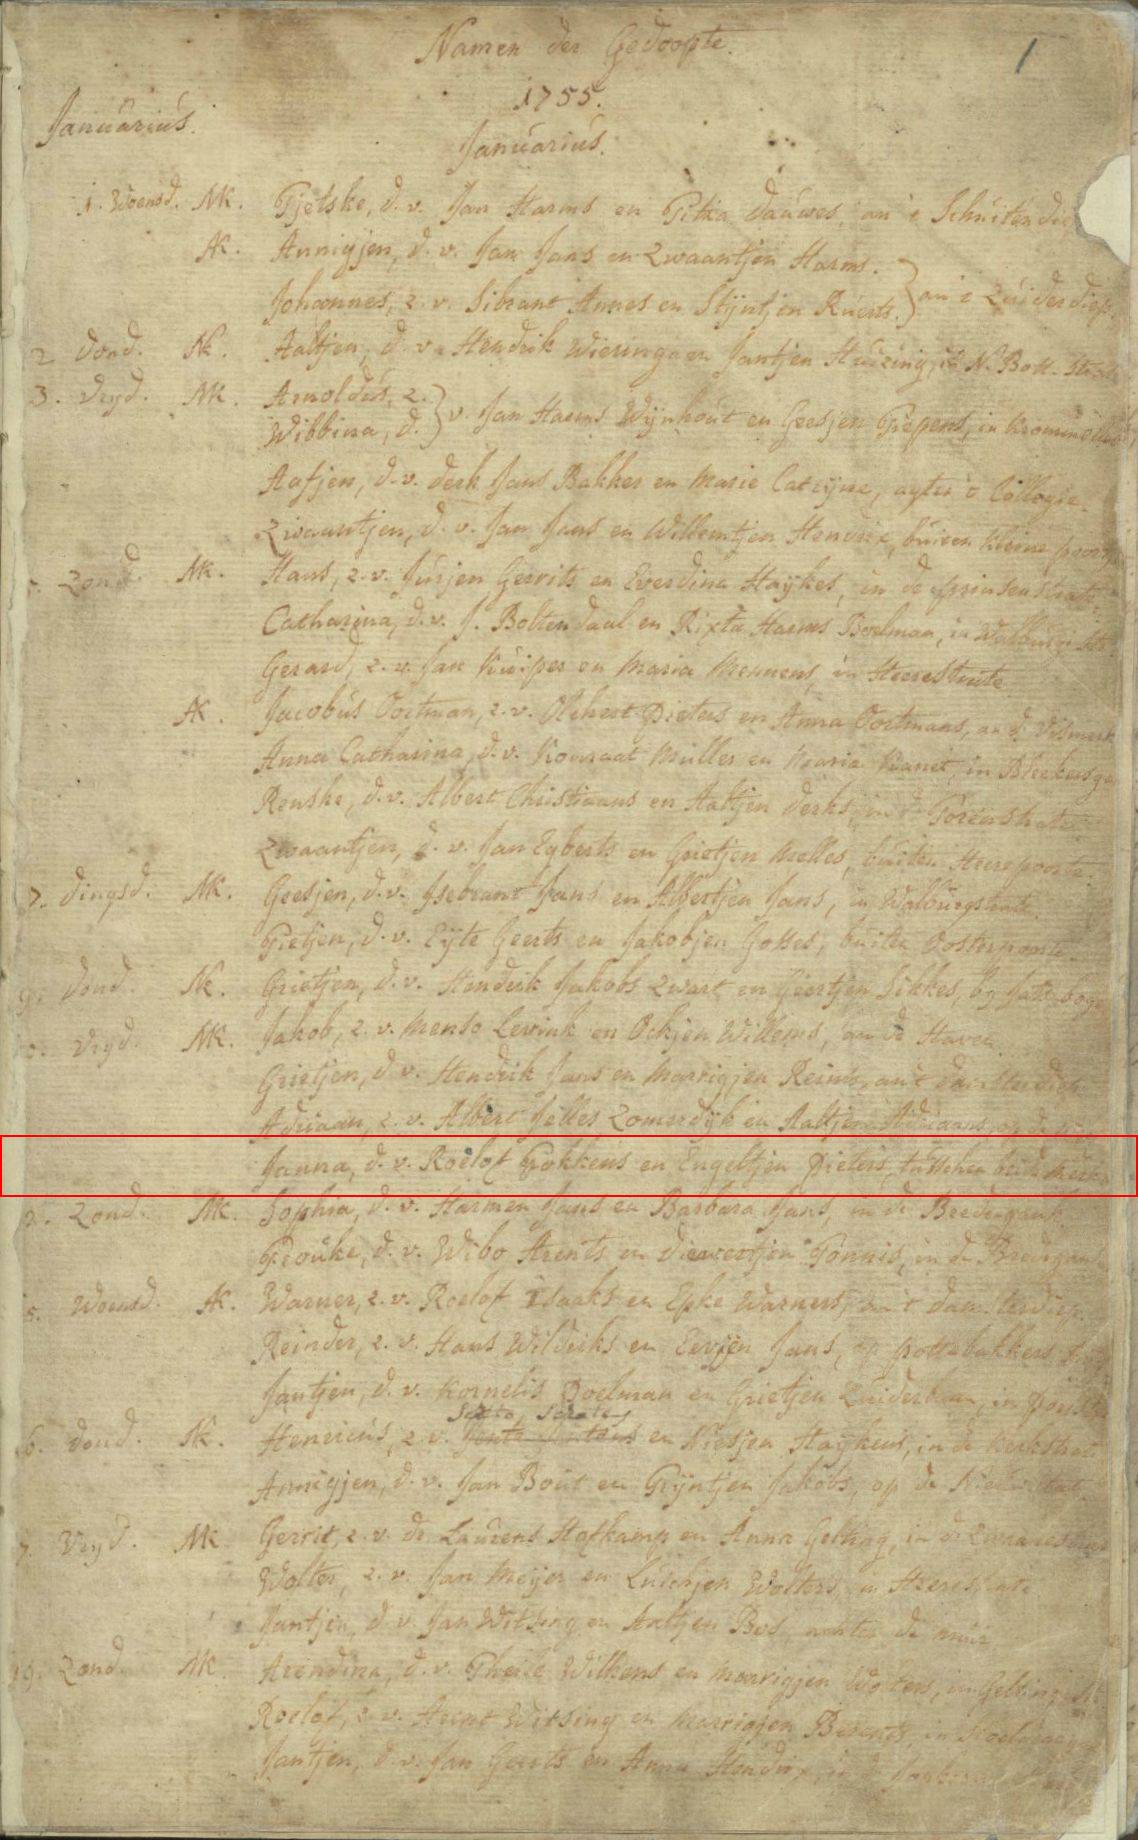 Namen der Gedoopte. 1
1755.
Januarius.
Januarius.
1. Woensd. NK. Tjetske, d. v. Jan Harms en Petka Dauwes, an 't Schuitendie
AK. Annigjen, d. v. Jan Jans en Zwaantjen Harms.
Johannes, z. v. Sibrant Annes en Stijntjen Ruerts. } an 't Zuiderdiep.
2 Dond. NK. Aaltjen, d. v. Hendrik Wieringa en Jantjen Huizing, in N. Bott. Str
3. Vryd. NK. Arnoldus, z.
Wibbina, d. } v. Jan Harms Wijnhout en Geesjen Piepens, in Kromme
Aafjen, d. v. Derk Jans Bakker en Marie Catrijne, agter 't Collegie.
Zwaantjen, d. v. Jan Jans en Willemtjen Hendrix, buiten kleine poort
Zond. NK. Hans, z. v. Jurjen Gerrits en Everdina Haykes, in de prinsenstrate
Catharina, d. v. J. Boltendaal en Rixta Harms Boelman, in Walburg str.
Gerard, z. v. Jan Kuiper en Maria Mennens, in Heerestrate
AK. Jacobus Oortman, z. v. Olchert Pieters en Anna Oortmans, an d. Vismerk
Anna Catharina, d. v. Konraat Muller en Maria in Bleekersga
Renske, d. v. Albert Christiaans en Aaltjen Derks, in d' Torenstrate
Zwaantjen, d. v. Jan Egberts en Grietjen Melles, buiten Heerepoorte.
7. Dingsd. NK. Geesjen, d. v. Jsebrant Jans en Albertjen Jans, in Walburgstrate.
Pietjen, d. v. Eijte Geerts en Jakobjen Gosses, buiten Oosterpoorte
9. Dond. NK. Grietjen, d. v. Hendrik Jakobs Zwart en Geertjen Sikkes, by
10. Vryd. NK. Jakob, z. v. Menso Levink en Ockjen Willems, an de Haven
Grietjen, d. v. Hendrik Jans en Marrigjen Reinds, an 't Damsterdiep
Adriaan, z. v. Albert Jelles Zomerdijk en Aaltjen Adriaans, op de
Janna, d. v. Roelof Fokkens en Engeltjen Pieters, tusschen beide merk
12. Zond. NK. Sophia, d. v. Harmen Jans en Barbara Jans, in de Bredegank
Frouke, d. v. Wibo Arents en Diewertjen Tonnis, in de Bredegank
15. Woensd. AK. Warner, z. v. Roelof Isaaks en Epke Warners, an 't Damsterdiep
Reinder, z. v. Hans Wilderiks en Eevjen Jans, op pottebakkers
Jantjen, d. v. Kornelis Doelman en Grietjen Zuiderbaan, in
16. Dond. NK. Henricus, z. v. en Niesjen Haykens, in de Kerkstrate
Annigjen, d. v. Jan Bout en Trijntjen Jakobs, op de Nieuwstat
17. Vryd. NK. Gerrit, z. v. de Laurens Hofkamp en Anna Gelking, in d. Zwanestrate
Wolter, z. v. Jan Meijer en Luichjen Wolters, in Heerestrate
Jantjen, d. v. Jan Witsing en Aaltjen Bos, achter de muir
19. Zond. NK. Arendina, d. v. Wilkens en Marrigjen Wolters, in Gelkingestr
Roelof, z. v. Arent Witsing en Marrigjen Berents, in
Jantjen, d. v. Jan Geerts en Anna Hendrix, in d.